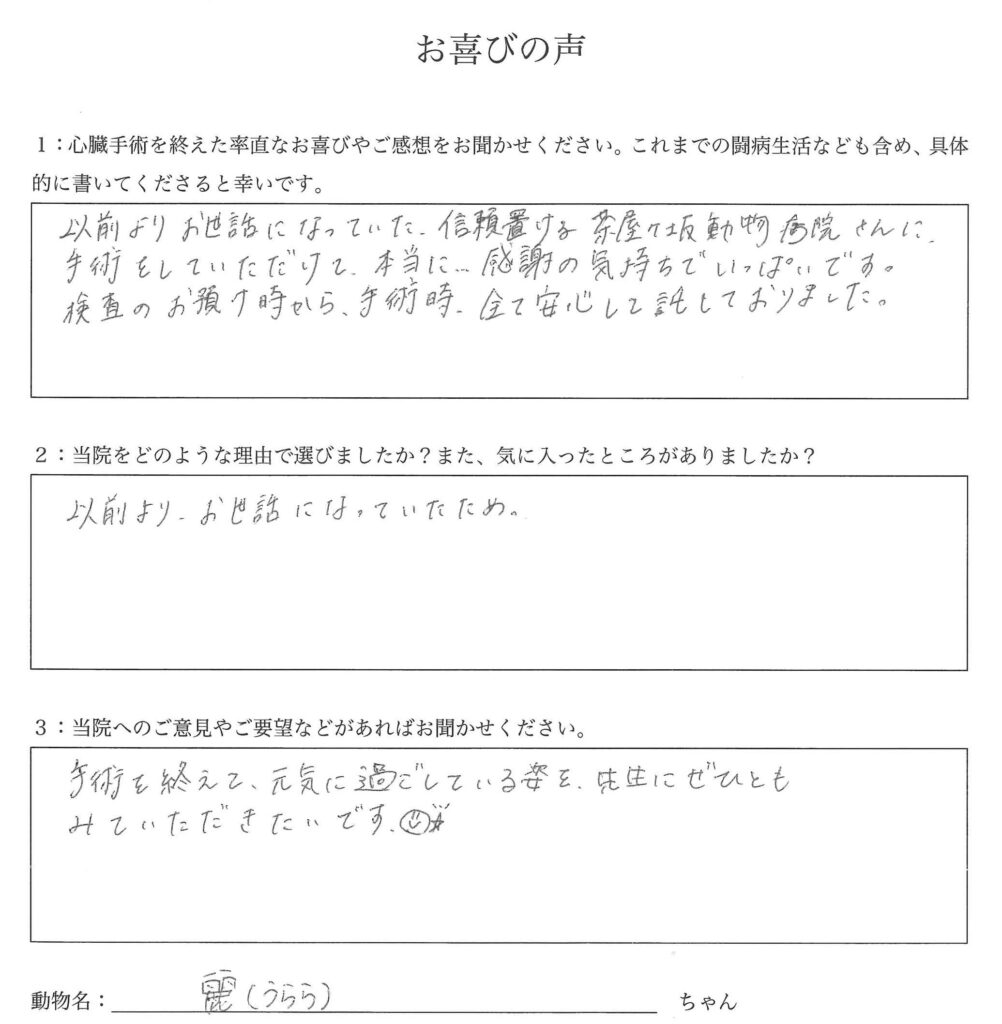 お喜びの声
１：心臓手術を終えた率直なお喜びやご感想をお聞かせください。これまでの闘病生活なども含め、具体
的に書いてくださると幸いです。
以前よりお世話になっていた、信頼置ける茶屋ヶ坂動物病院さんに、
手術をしていただけて、本当に…感謝の気持ちでいっぱいです。
検査のお預け時から、手術時、全て安心して託しておりました。
２：当院をどのような理由で選びましたか？また、気に入ったところがありましたか？
以前より、お世話になっていたため。
３：当院へのご意見やご要望などがあればお聞かせください。
手術を終えて、元気に過ごしている姿を、先生にぜひとも
みていただきたいです。
動物名：麗（うらら） ちゃん